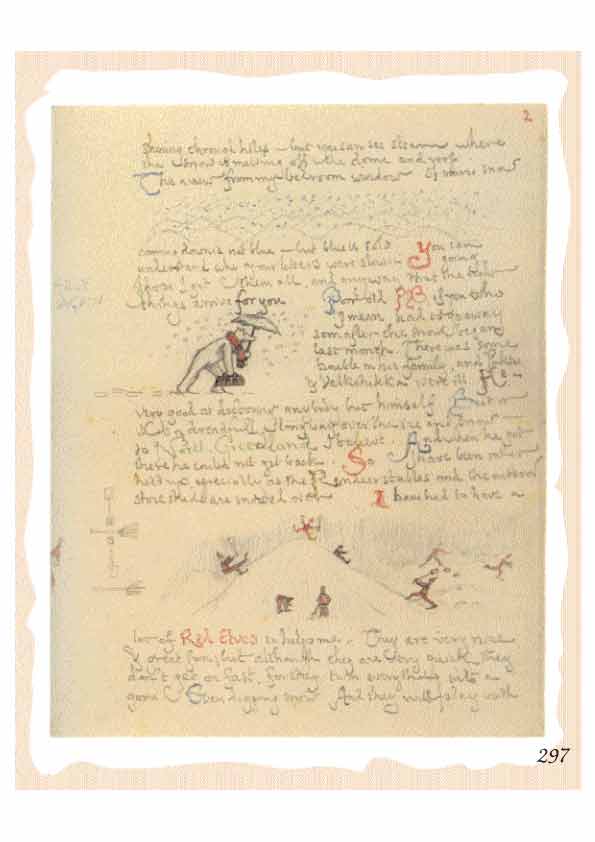 2
through holes – but you can see steam where
the snow is melting off the dome and roof.
This a view from my bedroom window. Of course snow
coming down is not blue – but blue is cold. You can
understand why your letters were slow in going
I got them all, and anyway that the
things arrive for you. Poor old PB, if you
I mean, had to go away
soon after the snow began
last month. There was some
trouble in his family, and
& Valkotukka were ill. He
very good at doctoring anybody but himself. But
it is a dreadfully long way over the ice and snow
to North Greenland I believe. And when he got
there he could not get back. So I have been rather
held up, especially as the Reindeer stables and the outdoor
store sheds are snowed over. I have had to have a
lot of Red Elves to help me. They are very nice
& great fun; but although they are very quick they
don't get on fast. For they turn everything into a
game. Even digging snow. And they will play with
297